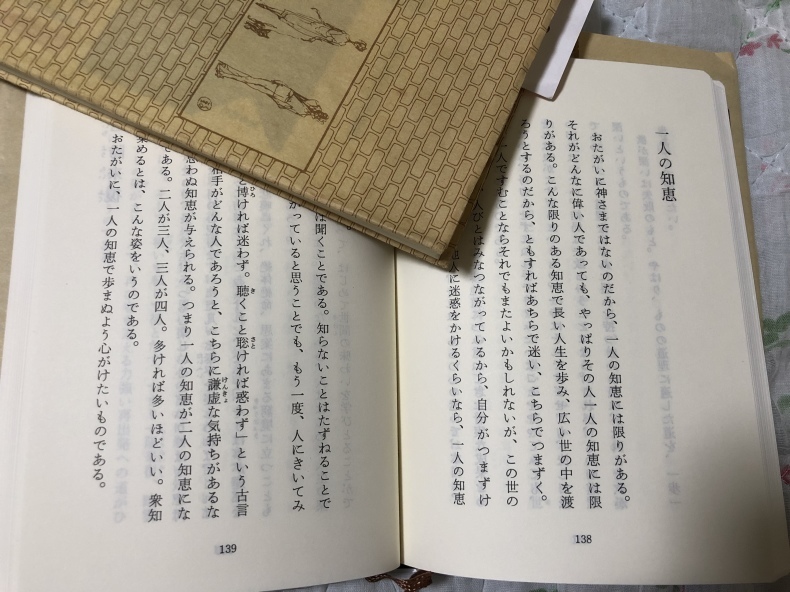 一人の知恵
おたがいに神さまではないのだから、一人の知恵には限りがある。
それがどんなに偉い人であっても、やっぱりその人一人の知恵には限
りがある。こんな限りのある知恵で長い人生を歩み、広い世の中を渡
ろうとするのだから、ともすればあちらで迷い、こちらでつまずく。
一人ですむことならそれでもまたよいかもしれないが、この世の
人びとはみなつながっているから、自分がつまずけ
他人に迷惑をかけるくらいなら、一人の知恵
138
は聞くことである。知らないことはたずねることで
かっていると思うことでも、もう一度、人にきいてみ
と博ければ迷わず。聴くこと聡ければ惑わず」という古言
相手がどんな人であろうと、こちらに謙虚な気持ちがあるな
思わぬ知恵が与えられる。つまり一人の知恵が二人の知恵にな
である。二人が三人、三人が四人。多ければ多いほどいい。衆知
集めるとは、こんな姿をいうのである。
おたがいに、一人の知恵で歩まぬよう心がけたいものである。
139